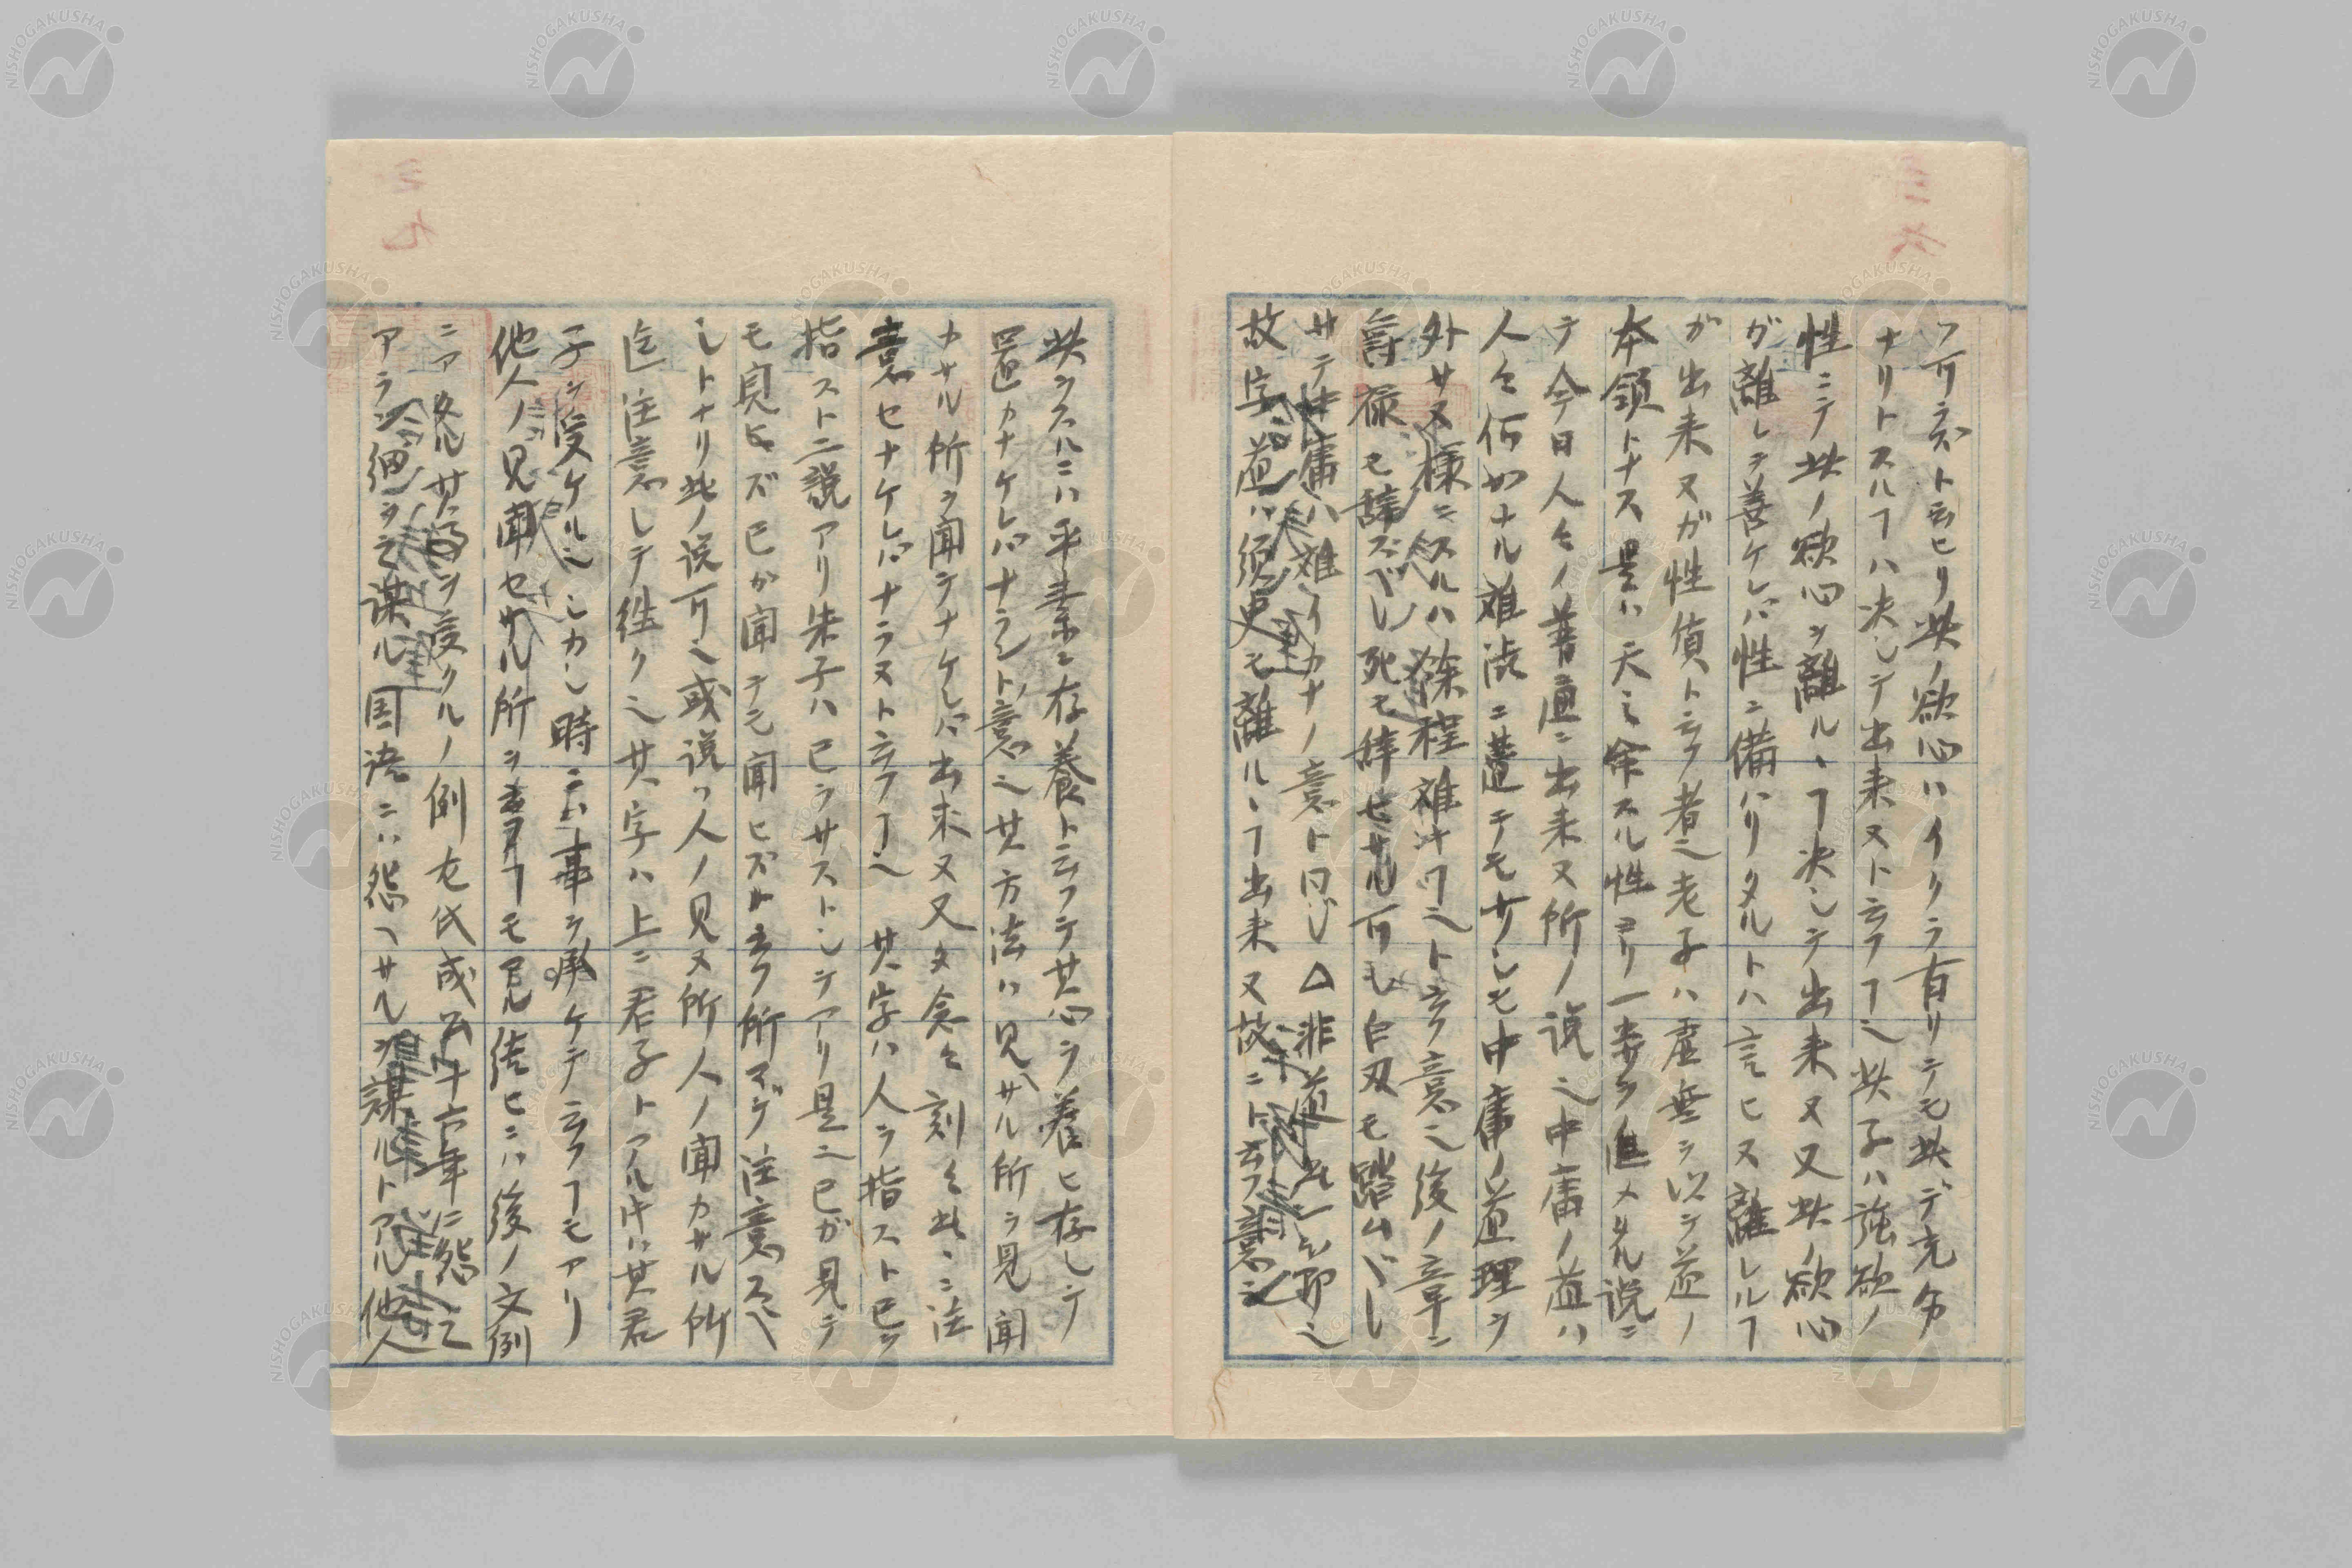 ヿ可ラズト云ヒリ此ノ慾心ハイクラ有リテモ此デ充分
ナリトスルヿハ决シテ出来ヌト云フヿ也此子ハ強慾ノ
性ニテ此ノ慾心ヲ離ルヽヿ决シテ出来ヌ又此ノ慾心
ガ離レテ善ケレバ性ニ備ハリタルトハ言ヒヌ離レルヿ
ガ出来ヌガ性質ト云フ者也老子ハ虚無ヲ以テ道ノ
本領トナス是ハ天之命スル性ヨリ一歩ヲ進メ先説ニ
テ今日人々ノ普通ニ出来ヌ所ノ説也中庸ノ道ハ
人々何如ナル難渋ニ遭テモ少シモ中庸ノ道理ヲ
外サヌ様ニスルハ餘程難キヿ也ト云フ意也後ノ章ニ
爵禄モ辞スベシ死モ辞セサル可シ白刃モ踏ムベシ
サテ中庸ハ難イカナノ意ト同ジ△非道也ノ也ハ耶也
故字道ハ須臾モ離ルヽヿ出来ヌ故ニト云フ意也
此ヲスルニハ平素ニ存養ト云フテ其心ヲ養ヒ存シテ
置カナケレバナラント意也其方法ハ見サル所ヲ見聞
カサル所ヲ聞テナケレバ出来ヌ又タ念々刻々此ニ注
意セナケレバナラヌト云フヿ也 其字ハ人ヲ指スト己ヲ
指スト二説アリ朱子ハ己ヲサストシテアリ是也己ガ見テ
モ見ヒズ己か聞テモ聞ヒズト云フ所マデ注意スベ
シトナリ此ノ説可也或説ハ人ノ見ヌ所人ノ聞カサル所
迄注意シテ徃ク也其字ハ上ニ君子トアルキハ其君
子ヲ受ケル也シカシ時ニハ事ヲ承ケテ云フヿモアリ
他人ノ見聞セサル所ヲ云フヿモアル結ヒニハ後ノ文例
ニアル其ヲ受クルノ例左氏成公十六年ニ怨之
アランヤ細ヲ之謀ル国語ニハ怨ヘサルヲ謀ルトアル他人
三六
三九
NISHOGAKUSHA